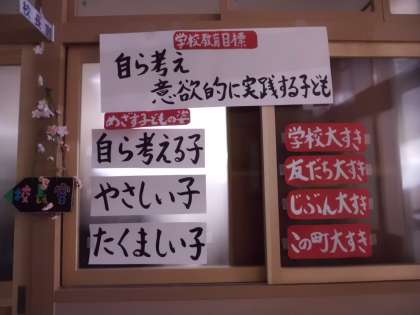 学校教育目標
自ら考え
意欲的に実践する子ども
めざす子どもの姿
自ら考える子
やさしい子
たくましい子
学校大すき
友だち大すき
じぶん大すき
この町大すき
校長室